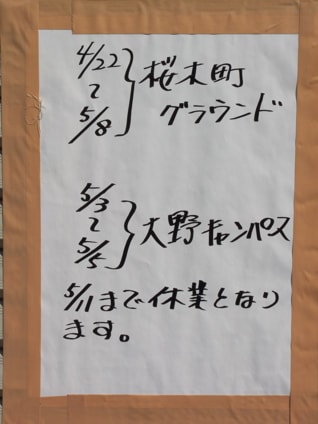 4/22
〜
5/8
桜木町
グラウンド
5/3
〜
5/5
大野キャンパス
5/11まで休業となり
ます。